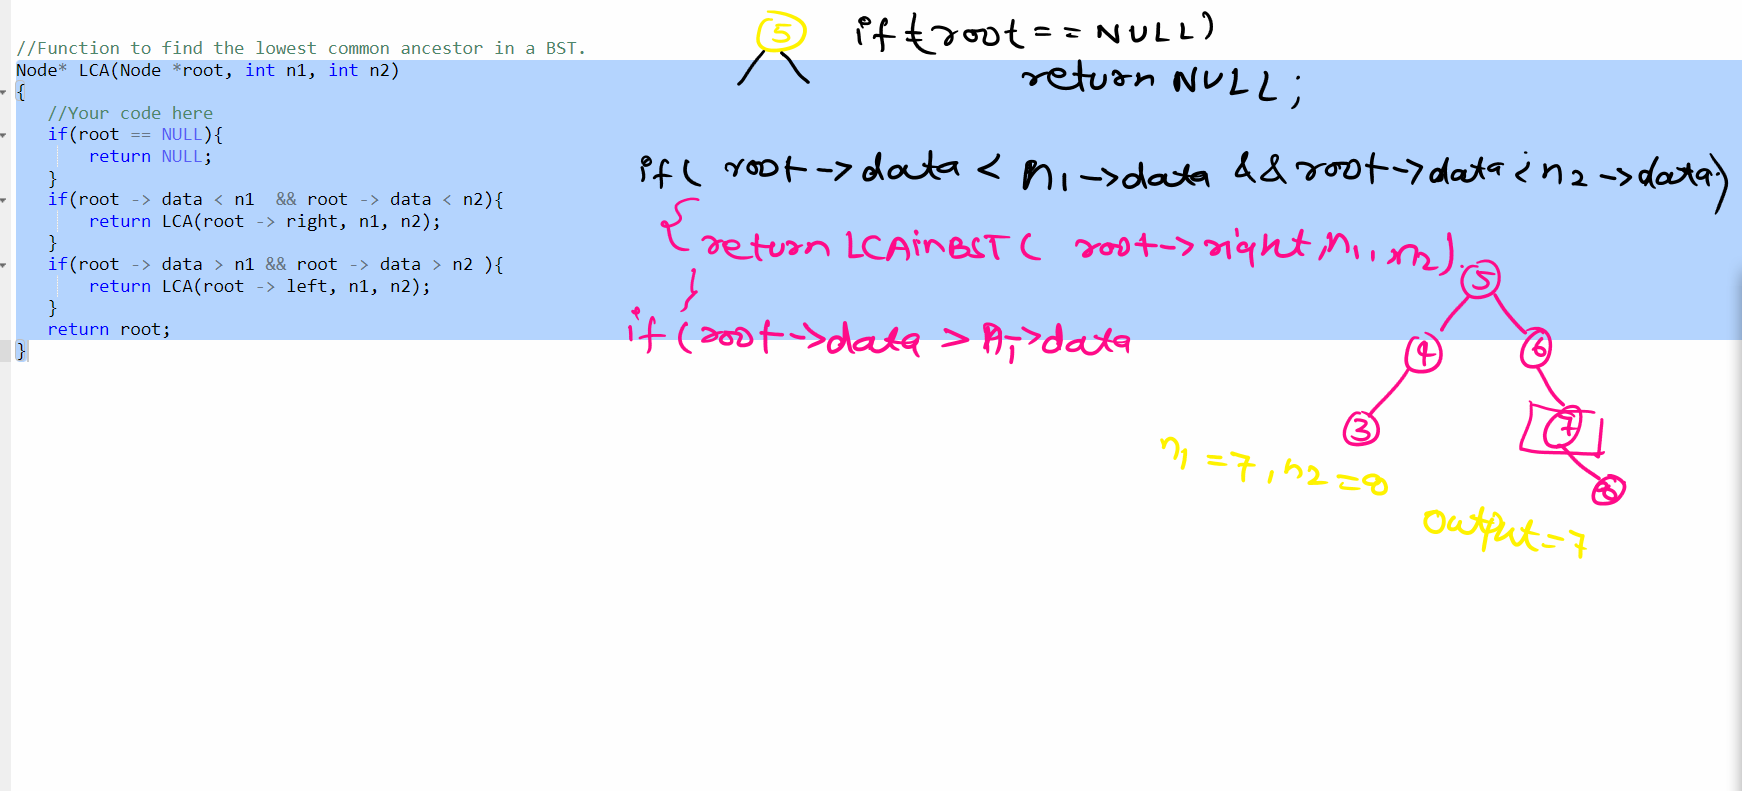 //Function to find the lowest common ancestor in a BST.
Node* LCA(Node *root, int n1, int n2)
{
//Your code here
if(root == NULL){
return NULL;
}
if(root -> data < n1  && root -> data < n2){
return LCA(root -> right, n1, n2);
}
if(root -> data > n1 && root -> data > n2 ){
return LCA(root -> left, n1, n2);
}
return root;
}
5
if(root == NULL)
return NULL;
if( root->data < n1->data && root->data < n2->data)
{
return LCAinBST( root->right, n1, n2).
}
if(root->data > n1->data
5
4
6
3
7
8
n1 = 7, n2 = 8
output = 7